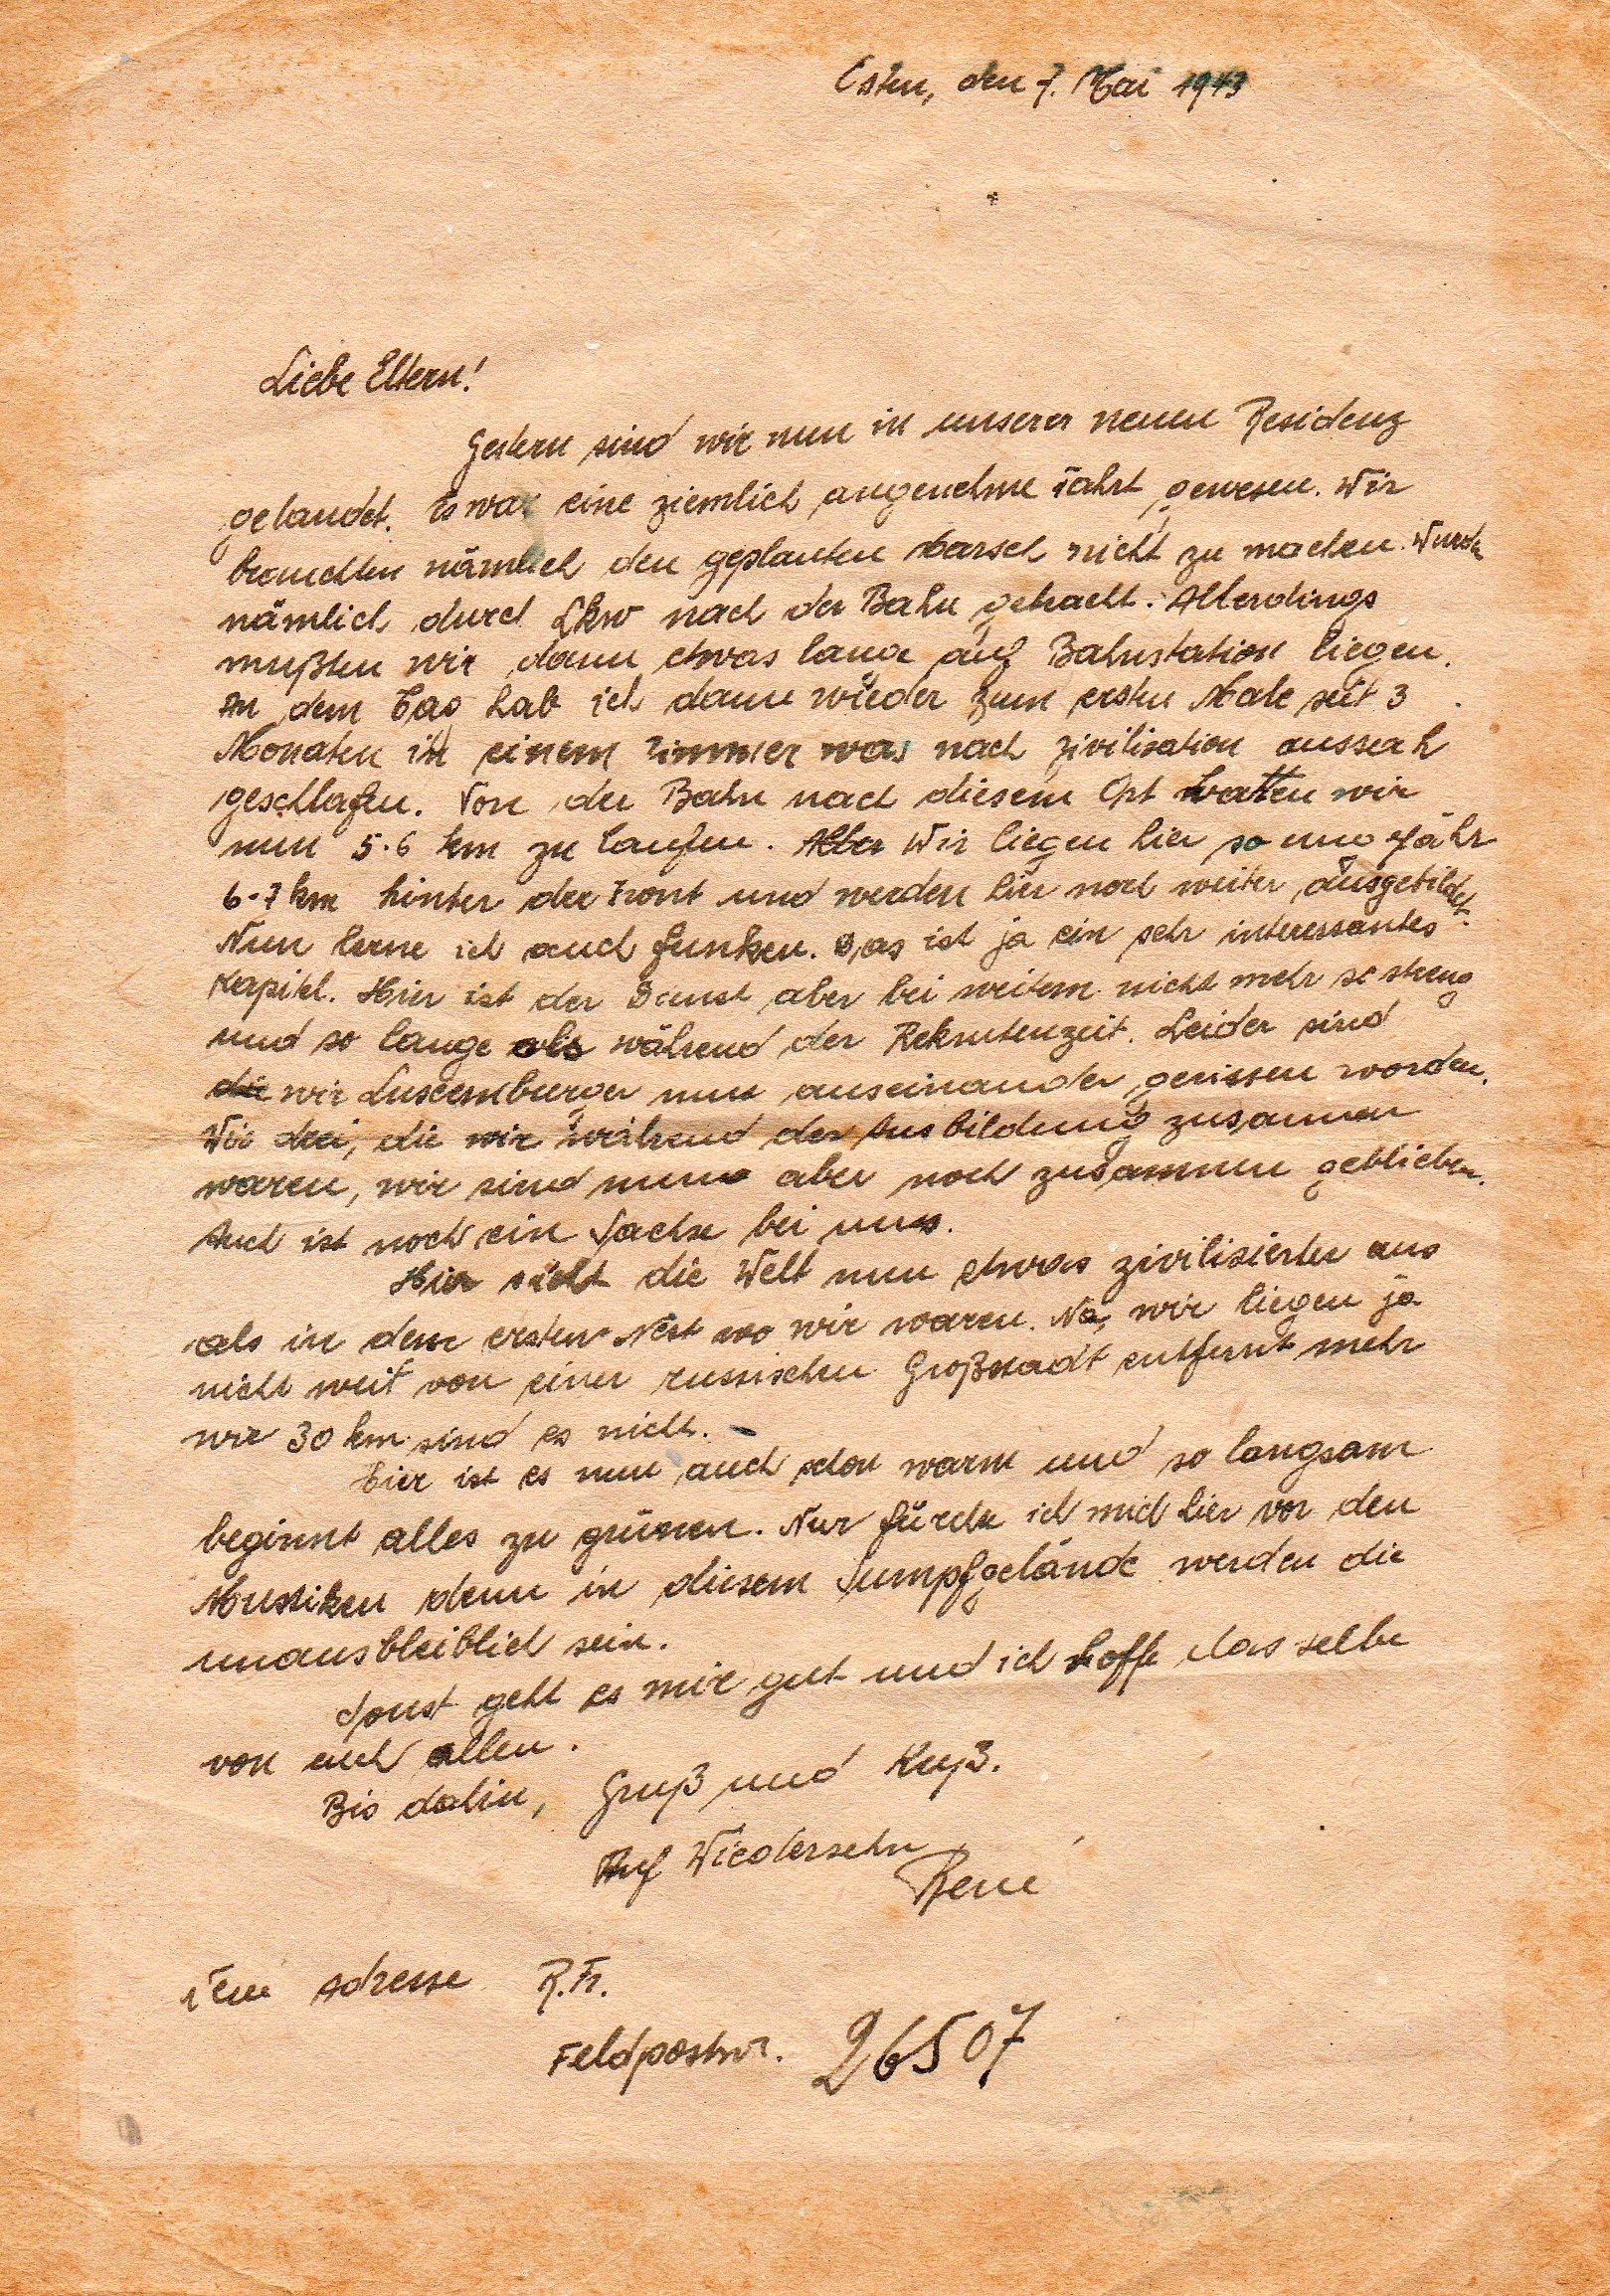 Osten, den 7. Mai 1943
Liebe Eltern!
Gestern sind wir nun in unserer neuen Residenz
gelandet. Es war eine ziemlich angenehme Fahrt gewesen. Wir
brauchten nämlich den geplanten Marsch nicht zu machen. Wurde
nämlich durch Lkw nach der Bahn gebracht. Allerdings
mußten wir dann etwas lange auf Bahnstation liegen.
An dem Tag hab ich dann wieder zum ersten Male seit 3
Monaten in einem Zimmer was nach zivilisation aussah
geschlafen. Von der Bahn nach diesem Ort hatten wir
nun 5-6 km zu laufen. Aber Wir liegen hier so ungefähr
6-7 km hinter der Front und werden hier noch weiter ausgebildet.
Nun lerne ich auch funken. Das ist ja ein sehr interessantes
Kapitel. Hier ist der Dienst aber bei weitem nicht mehr so streng
und so lange als während der Rekrutenzeit. Leider sind
die wir Luxemburger nun auseinander gerissen worden.
Wir drei, die wir während der Ausbildung zusamen
waren, wir sind nun aber noch zusammen geblieben.
Auch ist noch ein Sachse bei uns.
Hier sieht die Welt nun etwas zivilisierter aus
als in dem ersten Nest wo wir waren. Na, wir liegen ja
nicht weit von einer russischen Großstadt entfernt mehr
wie 30 km sind es nicht. -
Hier ist es nun auch schon warm und so langsam
beginnt alles zu grünen. Nur fürchte ich mich hier vor den
Mustiken denn in diesem Sumpfgelände werden die
unausbleiblich sein.
Sonst geht es mir gut und ich hoffe dasselbe
von euch allen.
Bis dahin, Gruß und Kuß.
Auf Wiedersehn
René
Neue Adresse R.Fr.
Feldpostnr. 26507